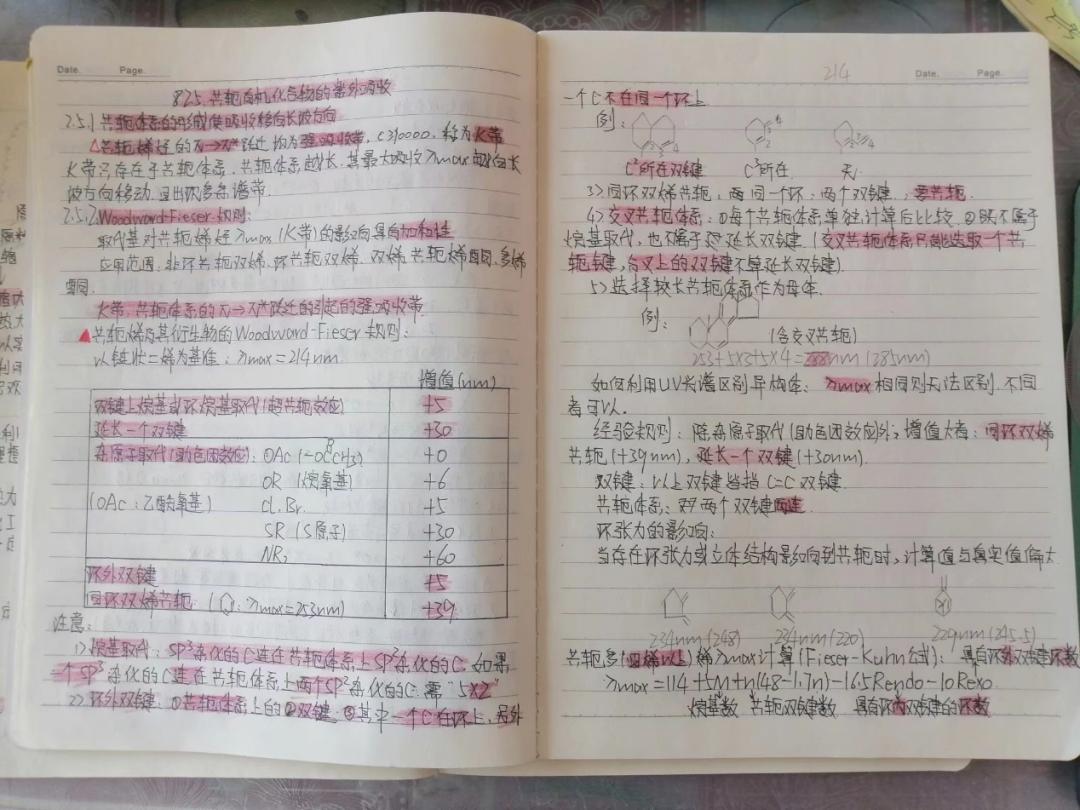 Date. Page.
§2.5. 共轭有机化合物的紫外吸收
2.5.1 共轭体系的形成使吸收移向长波方向
△共轭烯烃的π→π*跃迁均为强吸收带, ε≥10000, 称为K带
K带只存在于共轭体系. 共轭体系越长, 其最大吸收λmax越向长
波方向移动. 且出现多条谱带.
2.5.2 Woodward-Fieser规则:
取代基对共轭烯烃λmax(K带)的影响具有加和性
应用范围: 非环共轭双烯、环共轭双烯、双烯、共轭烯酮、多烯
酮
K带: 共轭体系的π→π*跃迁所引起的强吸收带
▲共轭烯及其衍生物的Woodward-Fieser规则:
以链状二烯为基准: λmax=214nm
增值(nm)
双键上烷基或环烷基取代(超共轭效应) +5
延长一个双键 +30
杂原子取代(助色团效应): ①OAc (-OCCH3) +0
OR (烷氧基) +6
(OAc: 乙酰氧基) Cl. Br. +5
SR (S原子) +30
NR2 +60
环外双键 +5
同环双烯共轭: ( : λmax=253nm) +39
注意:
1) 烷基取代: SP³杂化的C连在共轭体系上SP²杂化的C. 如果
一个SP³杂化的C连在共轭体系上两个SP²杂化的C: 需"5×2"
2) 环外双键: ①共轭体系上的②双键 ③其中一个C在环上, 另外
214 Date. Page.
一个C不在同一个环上
例:
C²所在双键 C³所在 无
3) 同环双烯共轭, 两同一个环; 两个双键; 要共轭
4) 交叉共轭体系: ①每个共轭体系单独计算后比较 ②既不属于
烷基取代, 也不属于延长双键. (交叉共轭体系只能选取一个共
轭键, 台叉上的双键不算延长双键)
5) 选择较长共轭体系作为母体.
例:
(含交叉共轭)
253+5×3+5×4=288nm (285nm)
如何利用UV光谱区别异构体: λmax相同则无法区别. 不同
者可以.
经验规则: 除杂原子取代(助色团效应)外, 增值大者: 同环双烯
共轭(+39nm), 延长一个双键(+30nm).
双键: 以上双键皆指C=C双键
共轭体系: 两个双键
环张力的影响:
当存在环张力或立体结构影响到共轭时, 计算值与真实值偏大
234nm (248) 234nm (220) 229nm (245.5)
共轭多(四烯以上)烯λmax计算(Fieser-Kuhn公式): 具有环外双键环数
λmax=114+5M+n(48-1.7n)-16.5Rendo-10Rexo
烷基数 共轭双键数 具有环内双键的环数